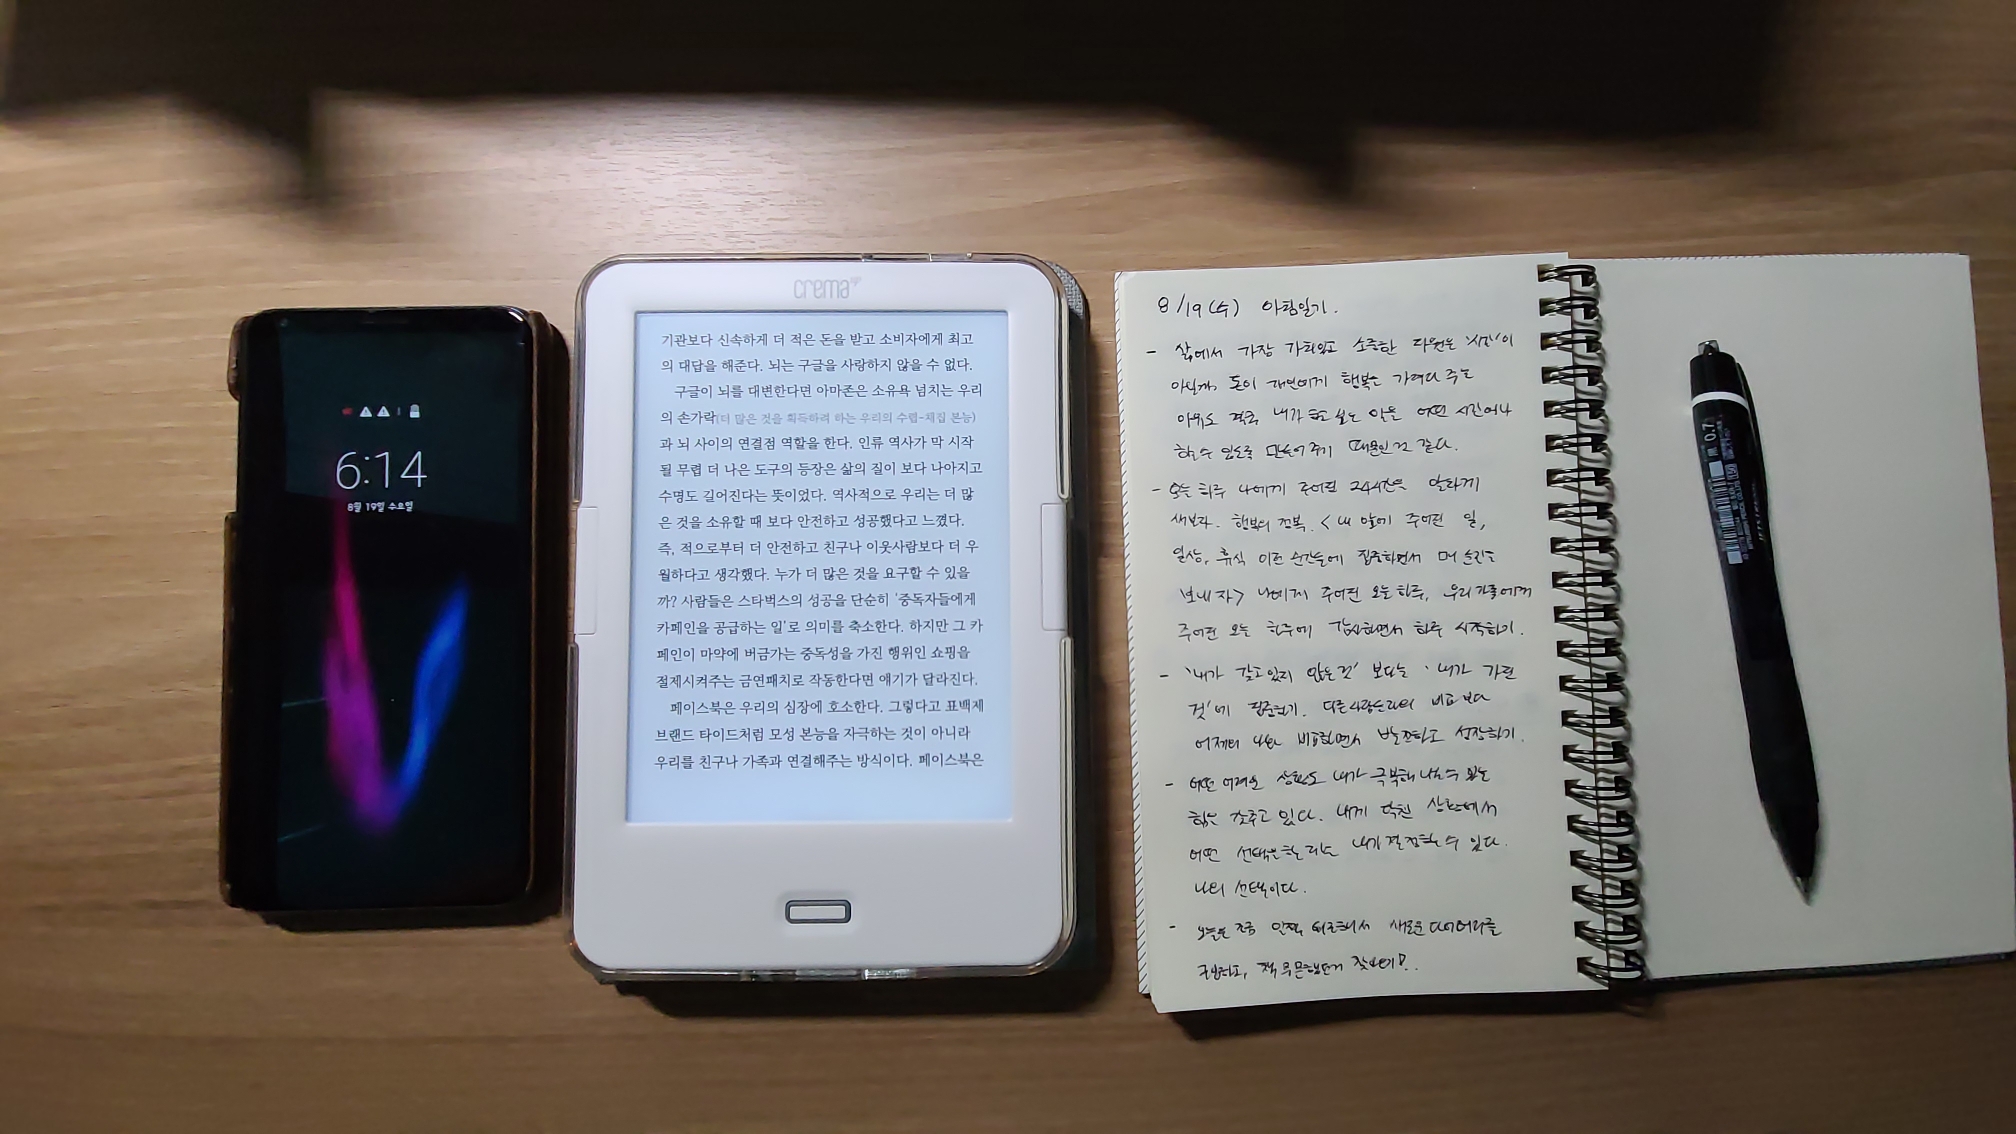 6:14
8월 19일 수요일
crema
기관보다 신속하게 더 적은 돈을 받고 소비자에게 최고
의 대답을 해준다. 뇌는 구글을 사랑하지 않을 수 없다.
구글이 뇌를 대변한다면 아마존은 소유욕 넘치는 우리
의 손가락(더 많은 것을 획득하려 하는 우리의 수렵-채집 본능)
과 뇌 사이의 연결점 역할을 한다. 인류 역사가 막 시작
될 무렵 더 나은 도구의 등장은 삶의 질이 보다 나아지고
수명도 길어진다는 뜻이었다. 역사적으로 우리는 더 많
은 것을 소유할 때 보다 안전하고 성공했다고 느꼈다.
즉, 적으로부터 더 안전하고 친구나 이웃사람보다 더 우
월하다고 생각했다. 누가 더 많은 것을 요구할 수 있을
까? 사람들은 스타벅스의 성공을 단순히 '중독자들에게
카페인을 공급하는 일'로 의미를 축소한다. 하지만 그 카
페인이 마약에 버금가는 중독성을 가진 행위인 쇼핑을
절제시켜주는 금연패치로 작동한다면 얘기가 달라진다.
페이스북은 우리의 심장에 호소한다. 그렇다고 표백제
브랜드 타이드처럼 모성 본능을 자극하는 것이 아니라
우리를 친구나 가족과 연결해주는 방식이다. 페이스북은
8/19(수) 아침일기.
- 삶에서 가장 가치있고 소중한 자원은 '시간'이
아닐까. 돈이 개인에게 행복을 가져다 주는
이유도 결국 내가 하고 싶은 일을 어떤 시간에나
할 수 있도록 만들어주기 때문인 것 같다.
- 오늘 하루 나에게 주어진 24시간을 알차게
써보자. 행복의 정복. <내 앞에 주어진 일,
일상, 휴식 이런 순간들에 집중하면서
보내자> 나에게 주어진 오늘 하루, 우리 가족에게
주어진 오늘 하루에 감사하면서 하루 시작하기.
- '내가 갖고 있지 않은 것' 보다는 '내가 가진
것'에 집중하기. 다른 사람들과의 비교보다
어제의 나와 비교하면서 발전하고 성장하기.
- 어떤 어려운 상황도 내가 극복해 나갈 수 있는
힘을 갖추고 있다. 내게 닥친 상황에서
어떤 선택을 하는지는 내가 결정할 수 있다.
나의 선택이다.
- 오늘은 조금 일찍 퇴근해서 새로운 다이어리를
구입하고, 책
0.7